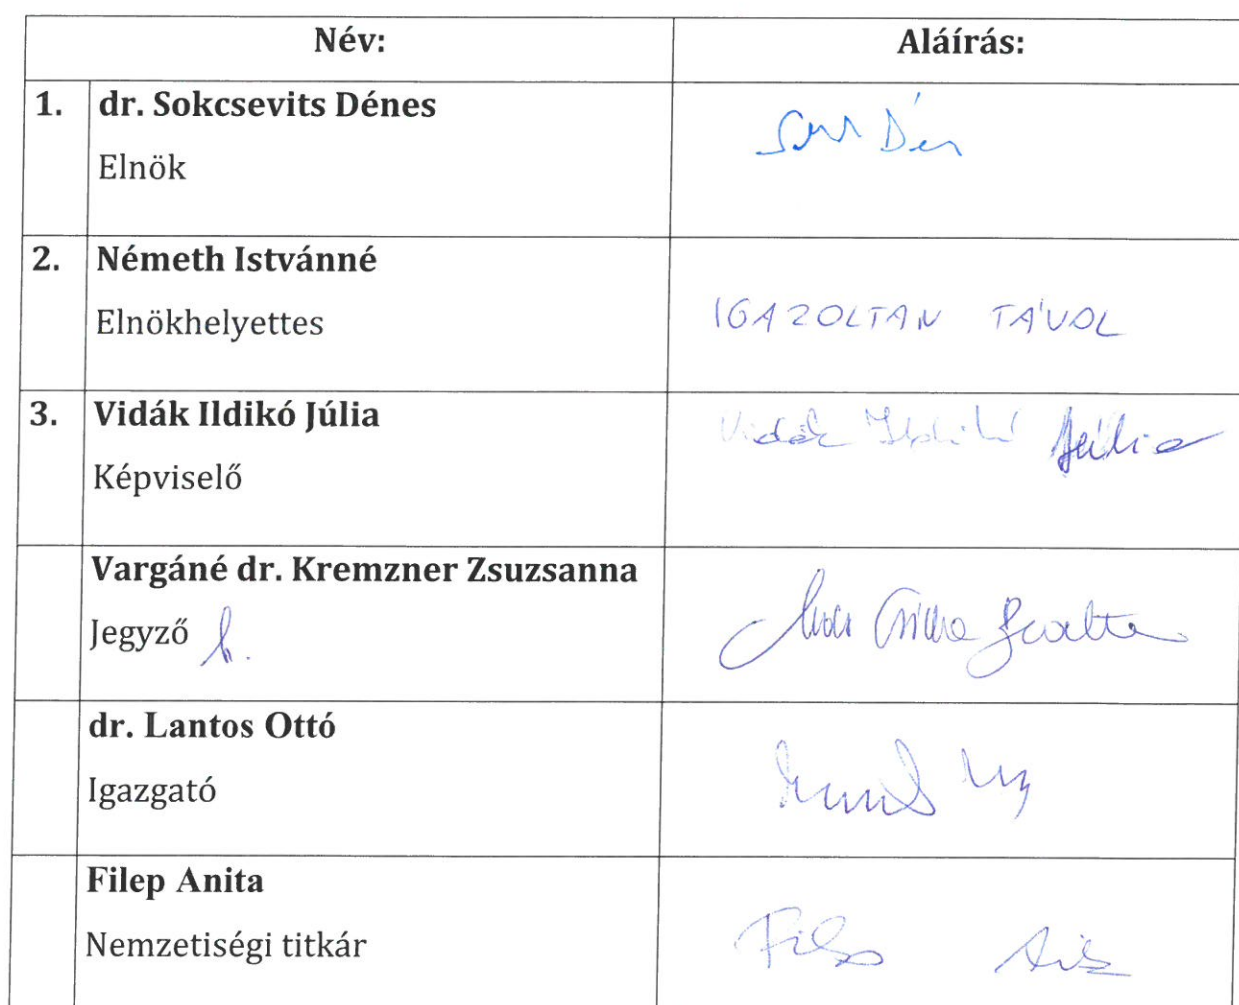 Név: Aláírás:
1. dr. Sokcsevits Dénes
Elnök
2. Németh Istvánné
Elnökhelyettes IGAZOLTAN TÁVOL
3. Vidák Ildikó Júlia Vidák Ildikó Júlia
Képviselő
Vargáné dr. Kremzner Zsuzsanna
Jegyző h.
dr. Lantos Ottó
Igazgató
Filep Anita
Nemzetiségi titkár